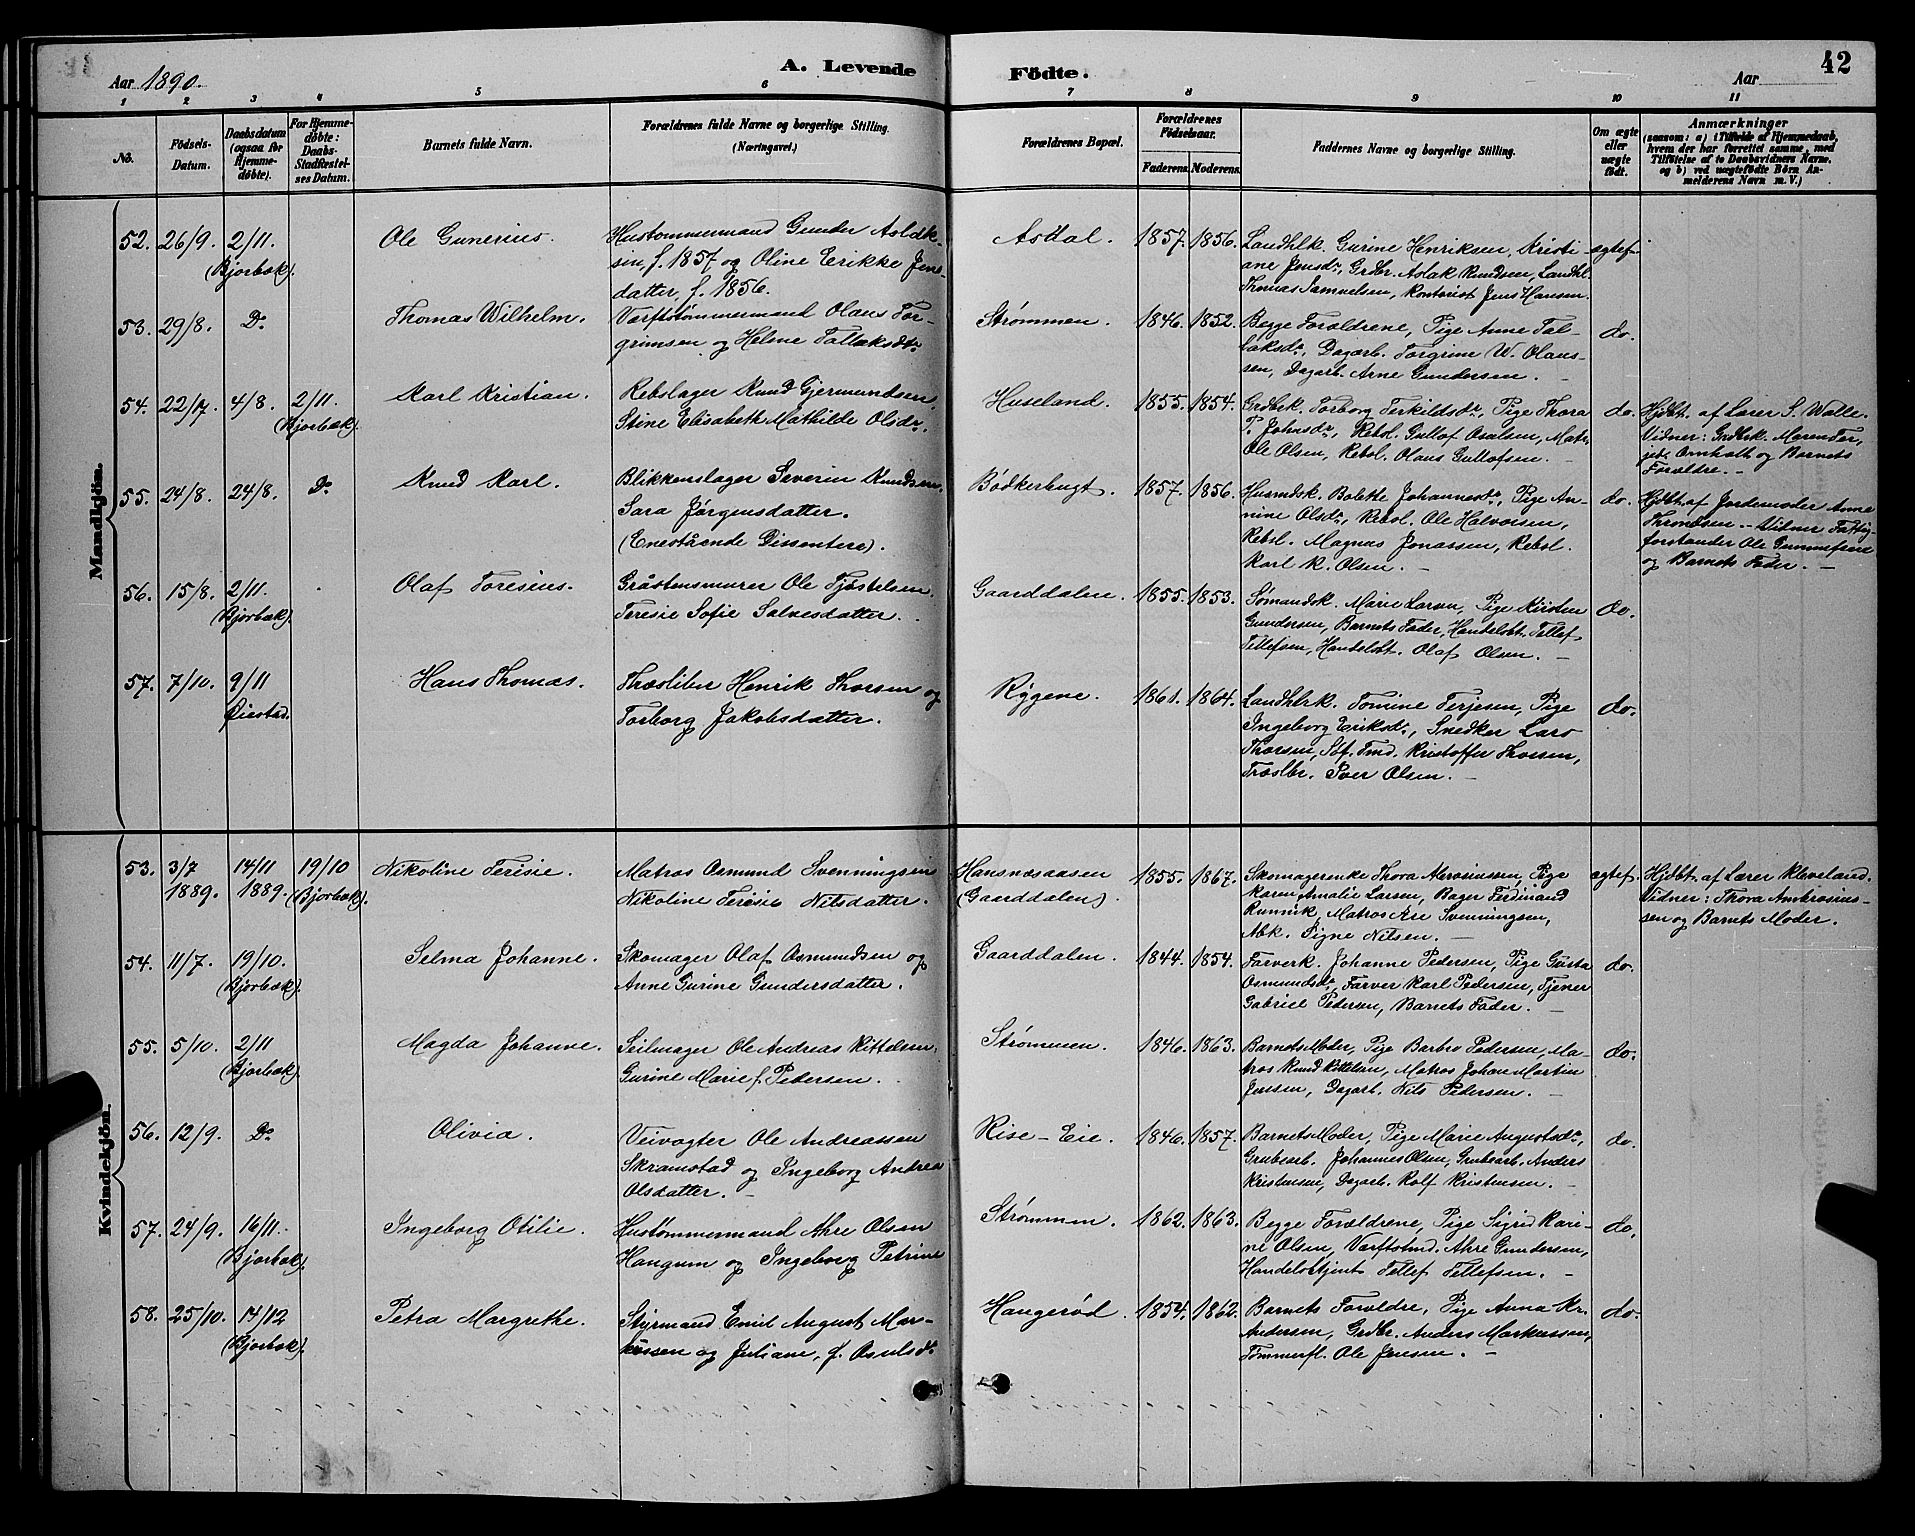 Aar 1890.
A. Levende Fødte.
Aar
42
1 2 3 4 5 6 7 8 9 10 11
No.
Födsels-Datum.
Daabsdatum (ogsaa for Hjemmedøbte).
For Hjemmedøbte: Daabs-Stadfæstelses Datum.
Barnets fulde Navn.
Forældrenes fulde Navne og borgerlige Stilling. (Næringsvei.)
Forældrenes Bopæl.
Forældrenes Födselsaar.
Faderens. Moderens.
Faddernes Navne og borgerlige Stilling.
Om ægte eller uægte født.
Anmærkninger
(saasom: a) i Tilfælde af Hjemmedaab, hvem der har forrettet samme, med Tilføielse af to Daabsvidners Navne, og b) ved uægtefødte Börn Anmelderens Navn m. V.)
Mandkjön.
52. 26/9. 2/11. (Bjorbæk). Ole Gunerius.
Hustømmermand Gunder Aslak-
sen, f. 1857 og Oline Erikke Jens-
datter, f. 1856.
Asdal. 1857. 1856.
Landhlk. Gurine Henriksen, Kristi-
ane Jensdr, Grdbr. Aslak Knudsen, Landhl.
Thomas Samuelsen, Kontorist Jens Hansen.
ægtef.
53. 29/8. Do Thomas Wilhelm.
Værftstømmermand Olaus Tor-
grimsen og Helene Tallaksdr.
Strømmen. 1846. 1852.
Begge Forældrene, Pige Anne Tal-
laksdr, Dagarb. Torgrim W. Olaus-
sen, Dagarb. Arne Gundersen.
do.
54. 22/7. 4/8. 2/11. (Bjorbæk). Karl Kristian.
Rebslager Knud Gjermundsen,
Stine Elisabeth Mathilde Olsdr.
Huseland. 1855. 1854.
Grdbrk. Torborg Terkildsdr, Pige Thora
T. Johnsdr, Rebsl. Gullof Osulsen, Matr.
Ole Olsen, Rebsl. Olaus Gullofsen.
do.
Hjdbt. af Lærer S. Walle.
Vidner: Grdbk. Maren Ter-
jede Omholt og Barnets
Forældre.
55. 24/8. 24/8. Do Knud Karl.
Blikkenslager Severin Knudsen,
Sara Jørgensdatter.
(Enestående Dissentere).
Bødkerbugt. 1857. 1856.
Husmdsk. Bolette Johannesdr, Pige An-
nine Olsdr, Rebsl. Ole Halvorsen,
Rebsl. Magnus Jonassen, Rebsl.
Karl K. Olsen.
do.
Hjdbt. af Jordemoder Anne
Thronesen. Vidner Fattig-
forstander Ole Gunnefsen
og Barnets Fader.
56. 15/8. 2/11. (Bjorbæk). Olaf Teresius.
Gråstensmurer Ole Tjøstelsen
Teresie Sofie Salvesdatter.
Gaarddalen. 1855. 1853.
Sømandsk. Marie Larsen, Pige Kirsten
Gundersen, Barnets Fader, Handelsbt. Tellef
Tellefsen, Handelsbt. Olaf Olsen.
do.
57. 7/10. 9/11 Øiestad. Hans Thomas.
Træsliber Henrik Thorsen og
Torborg Jakobsdatter.
Rygene. 1861. 1864.
Landhlrk. Tomine Terjesen, Pige
Ingeborg Eriksdr, Snedker Lars
Thorsen, Søf. Tmd. Kristoffer Thorsen,
Træslbr. Peer Olsen.
do.
Kvindekjön.
53. 3/7 1889. 14/11 1889. 19/10 (Bjorbæk). Nikoline Teresie.
Matros Osmund Svenningsen
Nikoline Teresie Nilsdatter.
Hansnæsaasen
(Gaarddalen)
1855. 1867.
Skomagerenke Thora Ambrosiussen, Pige
Karen Amalie Larsen, Bager Ferdinand
Runnik, Matros Are Svenningsen,
Abk. Signe Nilsen.
ægtef.
Hjdbt. af Lærer Kleveland.
Vidner: Thora Ambrosius-
sen og Barnets Moder.
54. 11/7. 19/10. (Bjorbæk). Selma Johanne.
Skomager Olaf Osmundsen og
Anne Gurine Gundersdatter.
Gaarddalen. 1844. 1854.
Farverk. Johanne Pedersen, Pige Gusta
Osmundsdr, Farver Karl Pedersen, Tjener
Gabriel Pedersen, Barnets Fader.
do.
55. 5/10. 2/11 (Bjorbæk). Magda Johanne.
Seilmager Ole Andreas Kittelsen,
Gurine Marie f. Pedersen.
Strømmen. 1846. 1863.
Barnets Moder, Pige Barbro Pedersen, Ma-
tros Knud Kittelsen, Matros Johan Martin
Jenssen, Dagarb. Nils Pedersen.
do.
56. 12/9. Do Olivia.
Veivogter Ole Andreassen
Skramstad og Ingeborg Andrea
Olsdatter.
Rise-Eie. 1846. 1857.
Barnets Moder, Pige Marie Augustsdr,
Grubearb. Johannes Olsen, Grubearb. Anders
Kristensen, Dagarb. Rolf Kristensen.
do.
57. 24/9. 16/11. (Bjorbæk). Ingeborg Otilie.
Hustømmermand Ahre Olsen
Haugum og Ingeborg Petrine
Strømmen. 1862. 1863.
Begge Forældrene, Pige Sigrid Kari-
ne Olsen, Værftstmd. Ahre Gundersen,
Handelsbtjent Tellef Tellefsen.
do.
58. 25/10. 14/12 (Bjorbæk). Petra Margrethe.
Styrmand Emil August Mar-
kussen og Juliane, f. Osulsdr.
Haugerød. 1854. 1862.
Barnets Forældre, Pige Anna Kr.
Andersen, Grdbr. Anders Markussen,
Tømmerfl. Ole Jensen.
do.